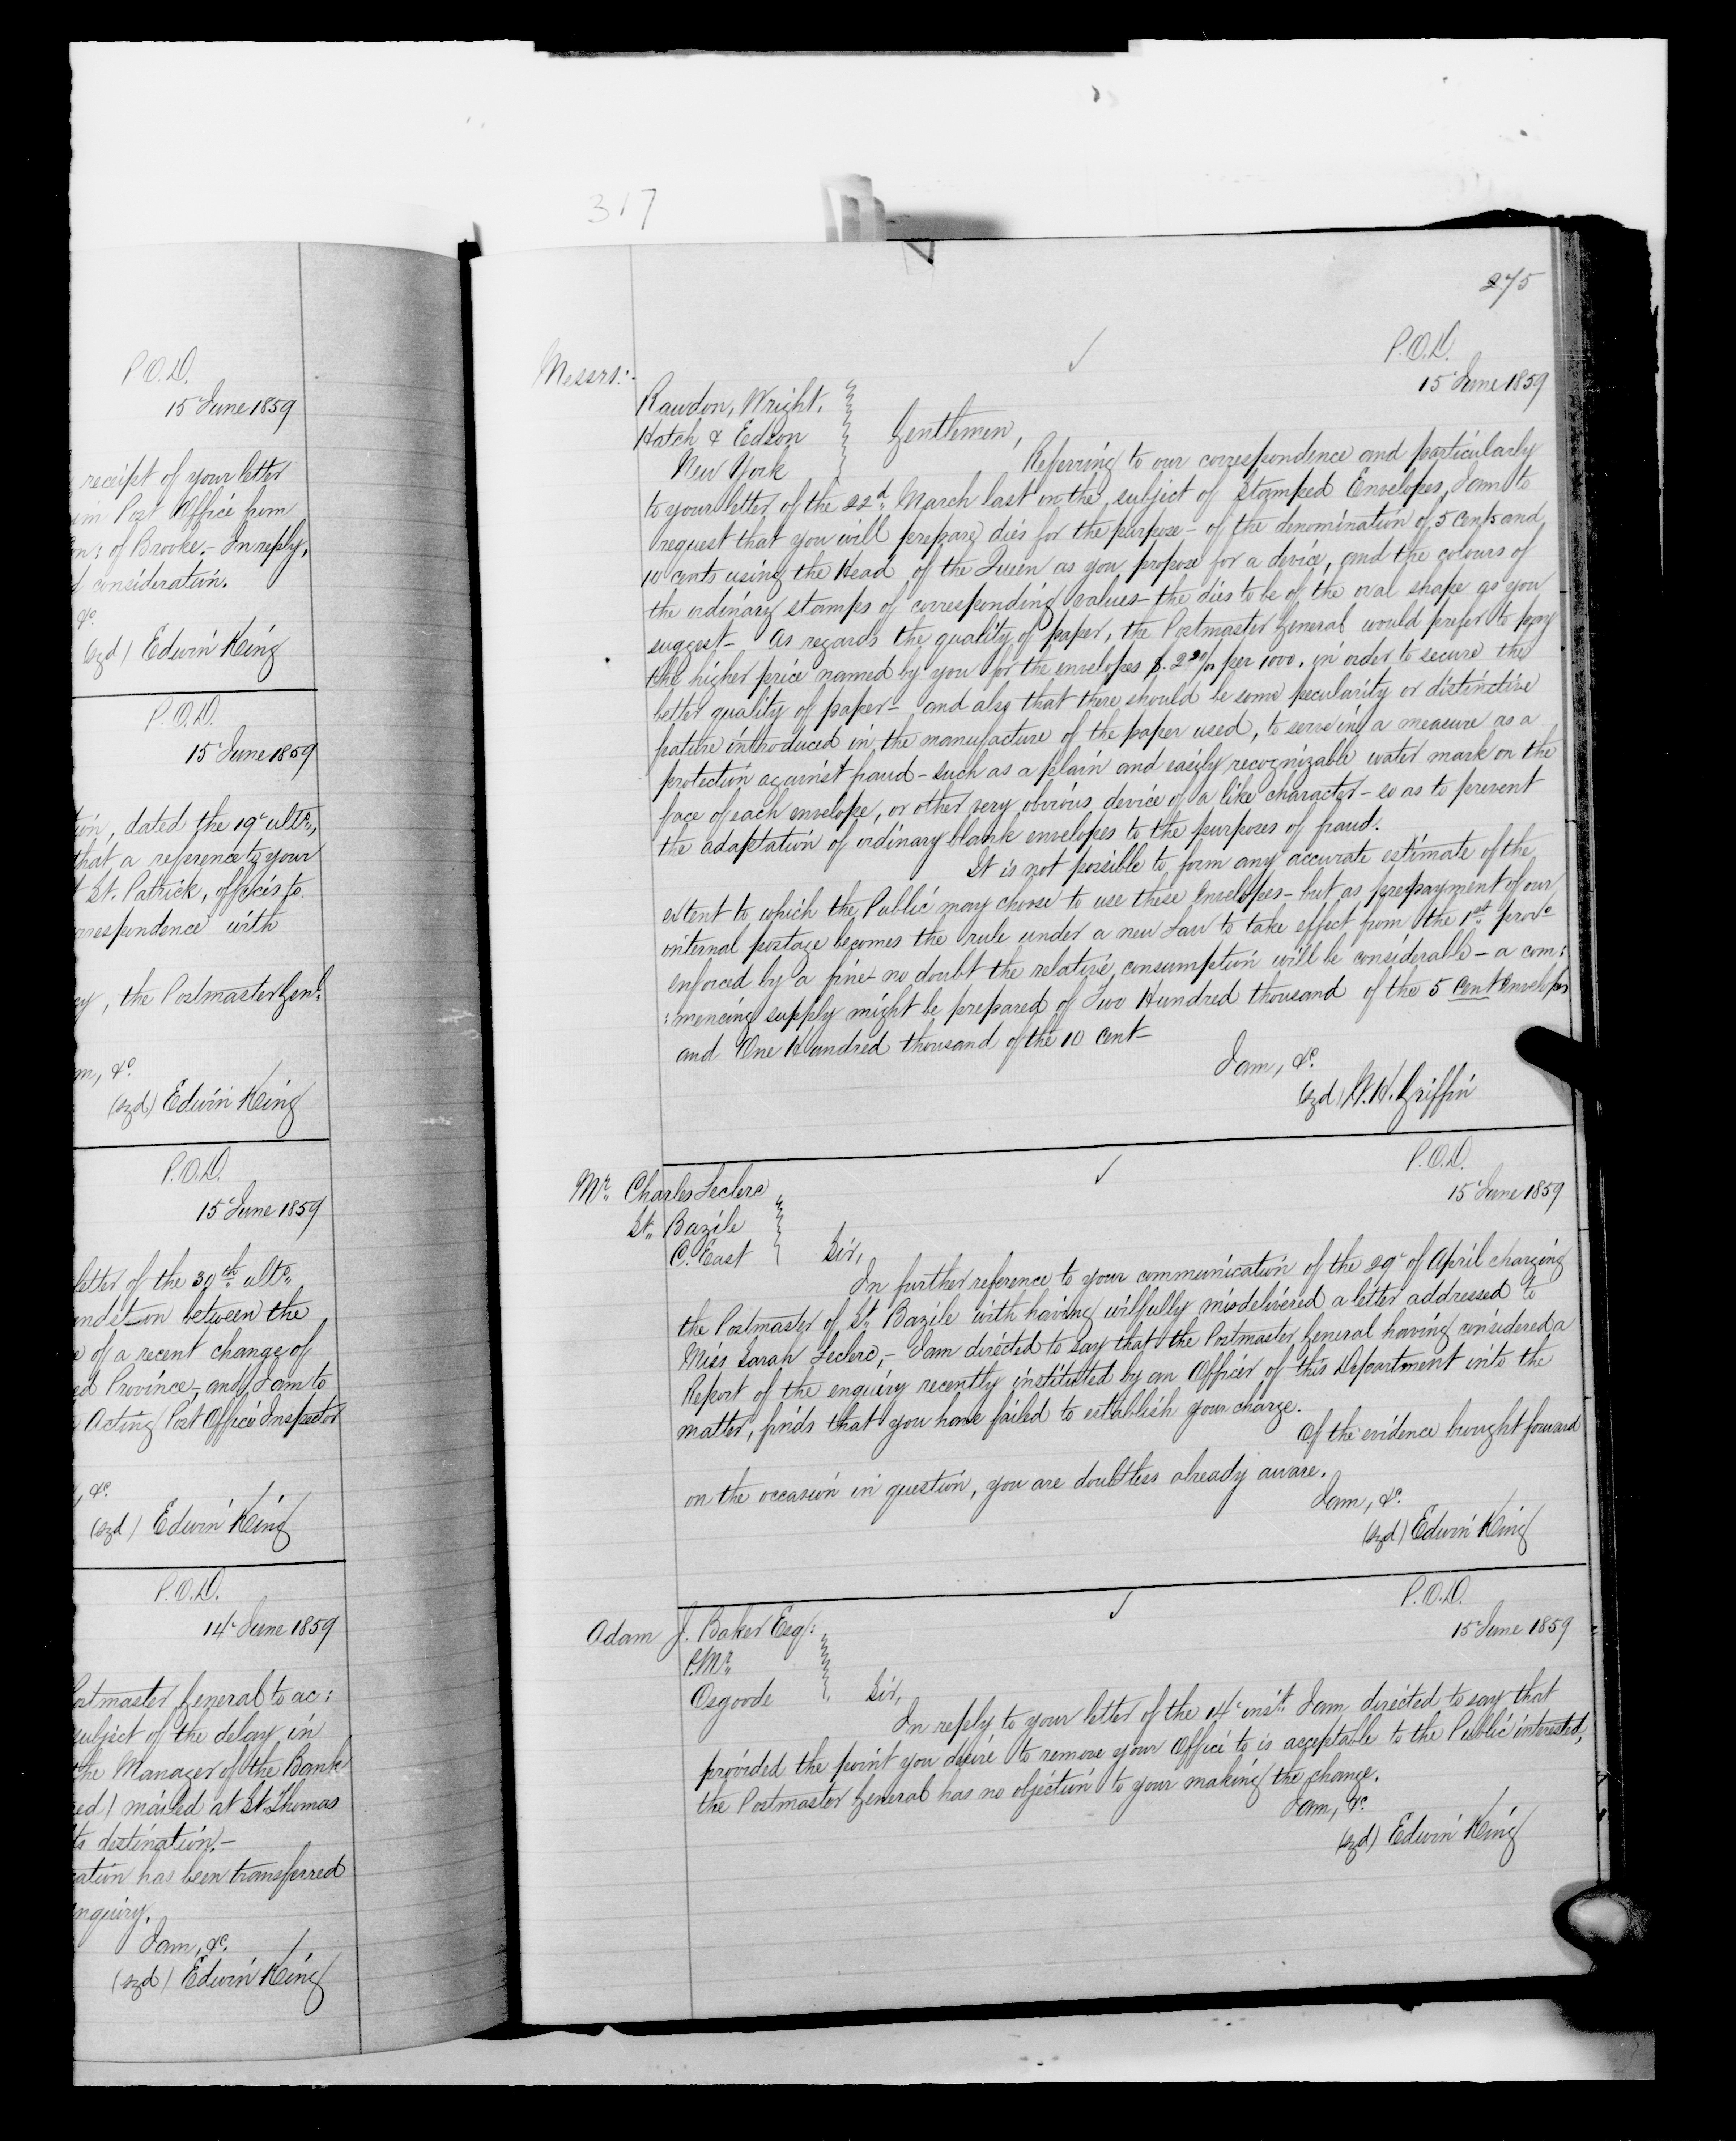 317
P.O.D.
15 June 1859
receipt of your letter
Post Office from
of Brooke. In reply,
consideration.
&c.
(sgd) Edwin King
P.O.D.
15 June 1859
dated the 19 ulto.,
that a reference to your
St. Patrick, offices to
with
the Postmaster Genl.
&c.
(sgd) Edwin King
P.O.D.
15 June 1859
letter of the 30th ulto.
between the
of a recent change of
Province - and I am to
Acting Post Office Inspector
&c.
(sgd) Edwin King
P.O.D.
14 June 1859
General to ac:
subject of the delay in
the Manager of the Bank
mailed at St. Thomas
destination.-
has been transferred
I am, &c.
(sgd) Edwin King
275
P.O.D.
15 June 1859
Messrs:-
Rawdon, Wright,
Hatch & Edson
New York
Gentlemen,
Referring to our correspondence and particularly
to your letter of the 22d March last on the subject of Stamped Envelopes, I am to
request that you will prepare dies for the purpose - of the denomination of 5 cents and
10 cents using the Head of the Queen as you propose for a device, and the colours of
the ordinary stamps of corresponding values - the dies to be of the oval shape as you
suggest - As regards the quality of paper, the Postmaster General would prefer to pay
the higher price named by you for the envelopes $. 2 20/00 per 1000. in order to secure the
better quality of paper - and also that there should be some pecularity or distinctive
feature introduced in the manufacture of the paper used, to serve in a measure as a
protection against fraud - such as a plain and easily recognizable water mark on the
face of each envelope, or other very obvious device of a like character - so as to prevent
the adaptation of ordinary blank envelopes to the purposes of fraud.
It is not possible to form any accurate estimate of the
extent to which the Public may choose to use these Envelopes - but as prepayment of our
internal postage becomes the rule under a new Law to take effect from the 1st
enforced by a fine - no doubt the relative consumption will be considerable - a com:
:mencing supply might be prepared of Two Hundred thousand of the 5 cent Envelopes
and One Hundred thousand of the 10 cent -
I am, &c.
(sgd) W. H. Griffin
P.O.D.
15 June 1859
Mr. Charles Leclerc
St. Bazile
C. East
Sir,
In further reference to your communication of the 29 of April charging
the Postmaster of St. Bazile with having wilfully misdelivered a letter addressed to
Miss Sarah Leclerc, - I am directed to say that the Postmaster General having considered a
Report of the enquiry recently instituted by an Officer of this Department into the
matter, finds that you have failed to establish your charge.
Of the evidence brought forward
on the occasion in question, you are doubtless already aware.
I am, &c.
(sgd) Edwin King
P.O.D.
15 June 1859
Adam J. Baker Esq:
P.Mr.
Osgoode
Sir,
In reply to your letter of the 14 inst. I am directed to say that
provided the point you desire to remove your Office to is acceptable to the Public interested,
the Postmaster General has no objection to your making the change.
I am, &c.
(sgd) Edwin King